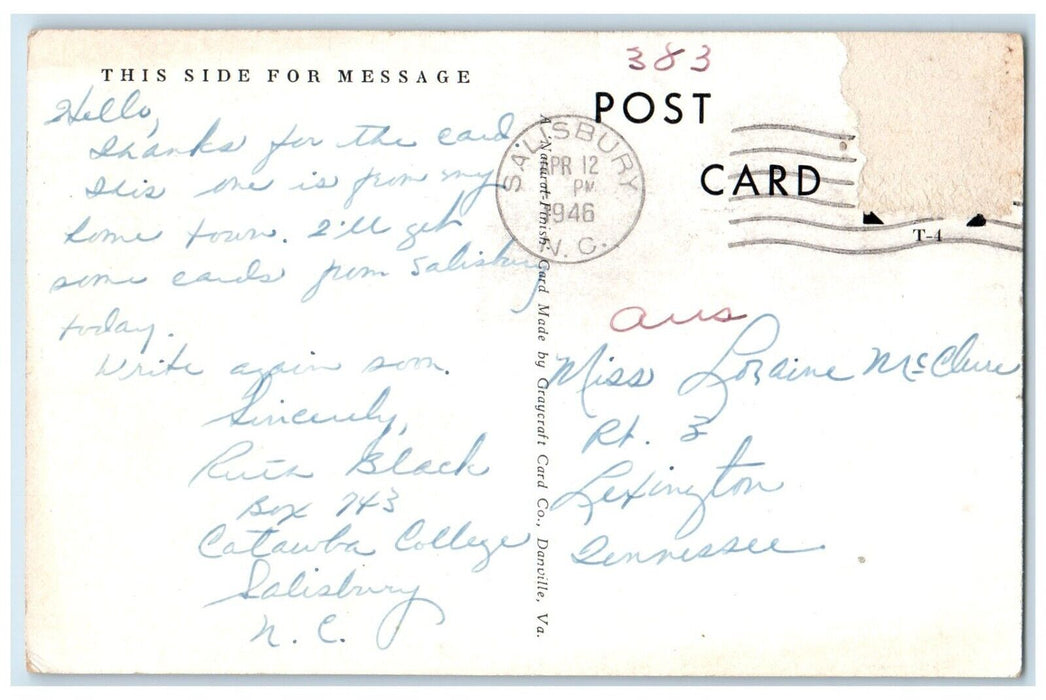 THIS SIDE FOR MESSAGE
Hello,
Thanks for the card
This one is from my
home town. I'll get
some cards from Salisbury
today.
Write again soon.
Sincerely,
Ruth Black
Box 743
Catawba College
Salisbury
N. C.
A "Natural-Finish" Card Made by Graycraft Card Co., Danville, Va.
383
POST
CARD
SALISBURY
APR 12
PM
1946
N. C.
T-4
ans
Miss Loraine McClure
Rt. 3
Lexington
Tennessee